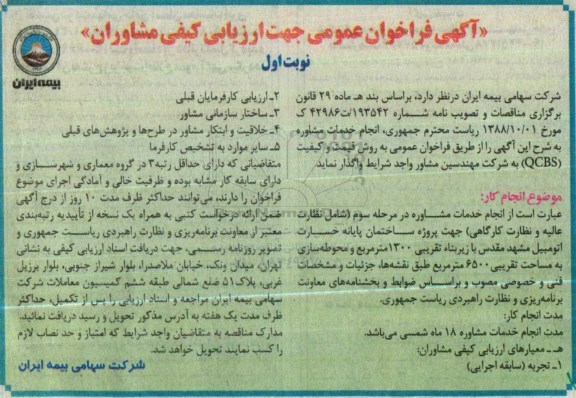 «آگهی فراخوان عمومی جهت ارزیابی کیفی مشاوران»
نوبت اول
بیمه ایران
شرکت سهامی بیمه ایران درنظر دارد، براساس بند هـ ماده ۲۹ قانون
برگزاری مناقصات و تصویب نامه شماره ۱۹۳۵۴۲/ت۴۲۹۸۶ ک
مورخ ۱۳۸۸/۱۰/۰۱ ریاست محترم جمهوری، انجام خدمات مشاوره
به شرح این آگهی را از طریق فراخوان عمومی به روش قیمت و کیفیت
(QCBS) به شرکت مهندسین مشاور واجد شرایط واگذار نماید.
موضوع انجام کار:
عبارت است از انجام خدمات مشاوره در مرحله سوم (شامل نظارت
عالیه و نظارت کارگاهی) جهت پروژه ساختمان پایانه خسارت
اتومبیل مشهد مقدس با زیربنای تقریبی ۱۳۰۰مترمربع و محوطه‌سازی
به مساحت تقریبی ۶۵۰۰ مترمربع طبق نقشه‌ها، جزئیات و مشخصات
فنی و خصوصی مصوب و براساس ضوابط و بخشنامه‌های معاونت
برنامه‌ریزی و نظارت راهبردی ریاست جمهوری.
مدت انجام کار:
مدت انجام خدمات مشاوره ۱۸ ماه شمسی می‌باشد.
هـ ـ معیارهای ارزیابی کیفی مشاوران:
۱ـ تجربه (سابقه اجرایی)
۲ـ ارزیابی کارفرمایان قبلی
۳ـ ساختار سازمانی مشاور
۴ـ خلاقیت و ابتکار مشاور در طرح‌ها و پژوهش‌های قبلی
۵ـ سایر موارد به تشخیص کارفرما
متقاضیانی که دارای حداقل رتبه۳ در گروه معماری و شهرسازی و
دارای سابقه کار مشابه بوده و ظرفیت خالی و آمادگی اجرای موضوع
فراخوان را دارند، می‌توانند حداکثر ظرف مدت ۱۰ روز از درج آگهی
ضمن ارائه درخواست کتبی به همراه یک نسخه از تأییدیه رتبه‌بندی
معتبر از معاونت برنامه‌ریزی و نظارت راهبردی ریاست جمهوری و
تصویر روزنامه رسمی، جهت دریافت اسناد ارزیابی کیفی به نشانی
تهران، میدان ونک، خیابان ملاصدرا، بلوار شیراز جنوبی، بلوار برزیل
غربی، پلاک ۵۱ ضلع شمالی طبقه ششم کمیسیون معاملات شرکت
سهامی بیمه ایران مراجعه و اسناد ارزیابی را پس از تکمیل، حداکثر
ظرف مدت یک هفته به آدرس مذکور تحویل و رسید دریافت نمائید.
مدارک مناقصه به متقاضیان واجد شرایط که امتیاز و حد نصاب لازم
را کسب نمایند تحویل خواهد شد.
شرکت سهامی بیمه ایران